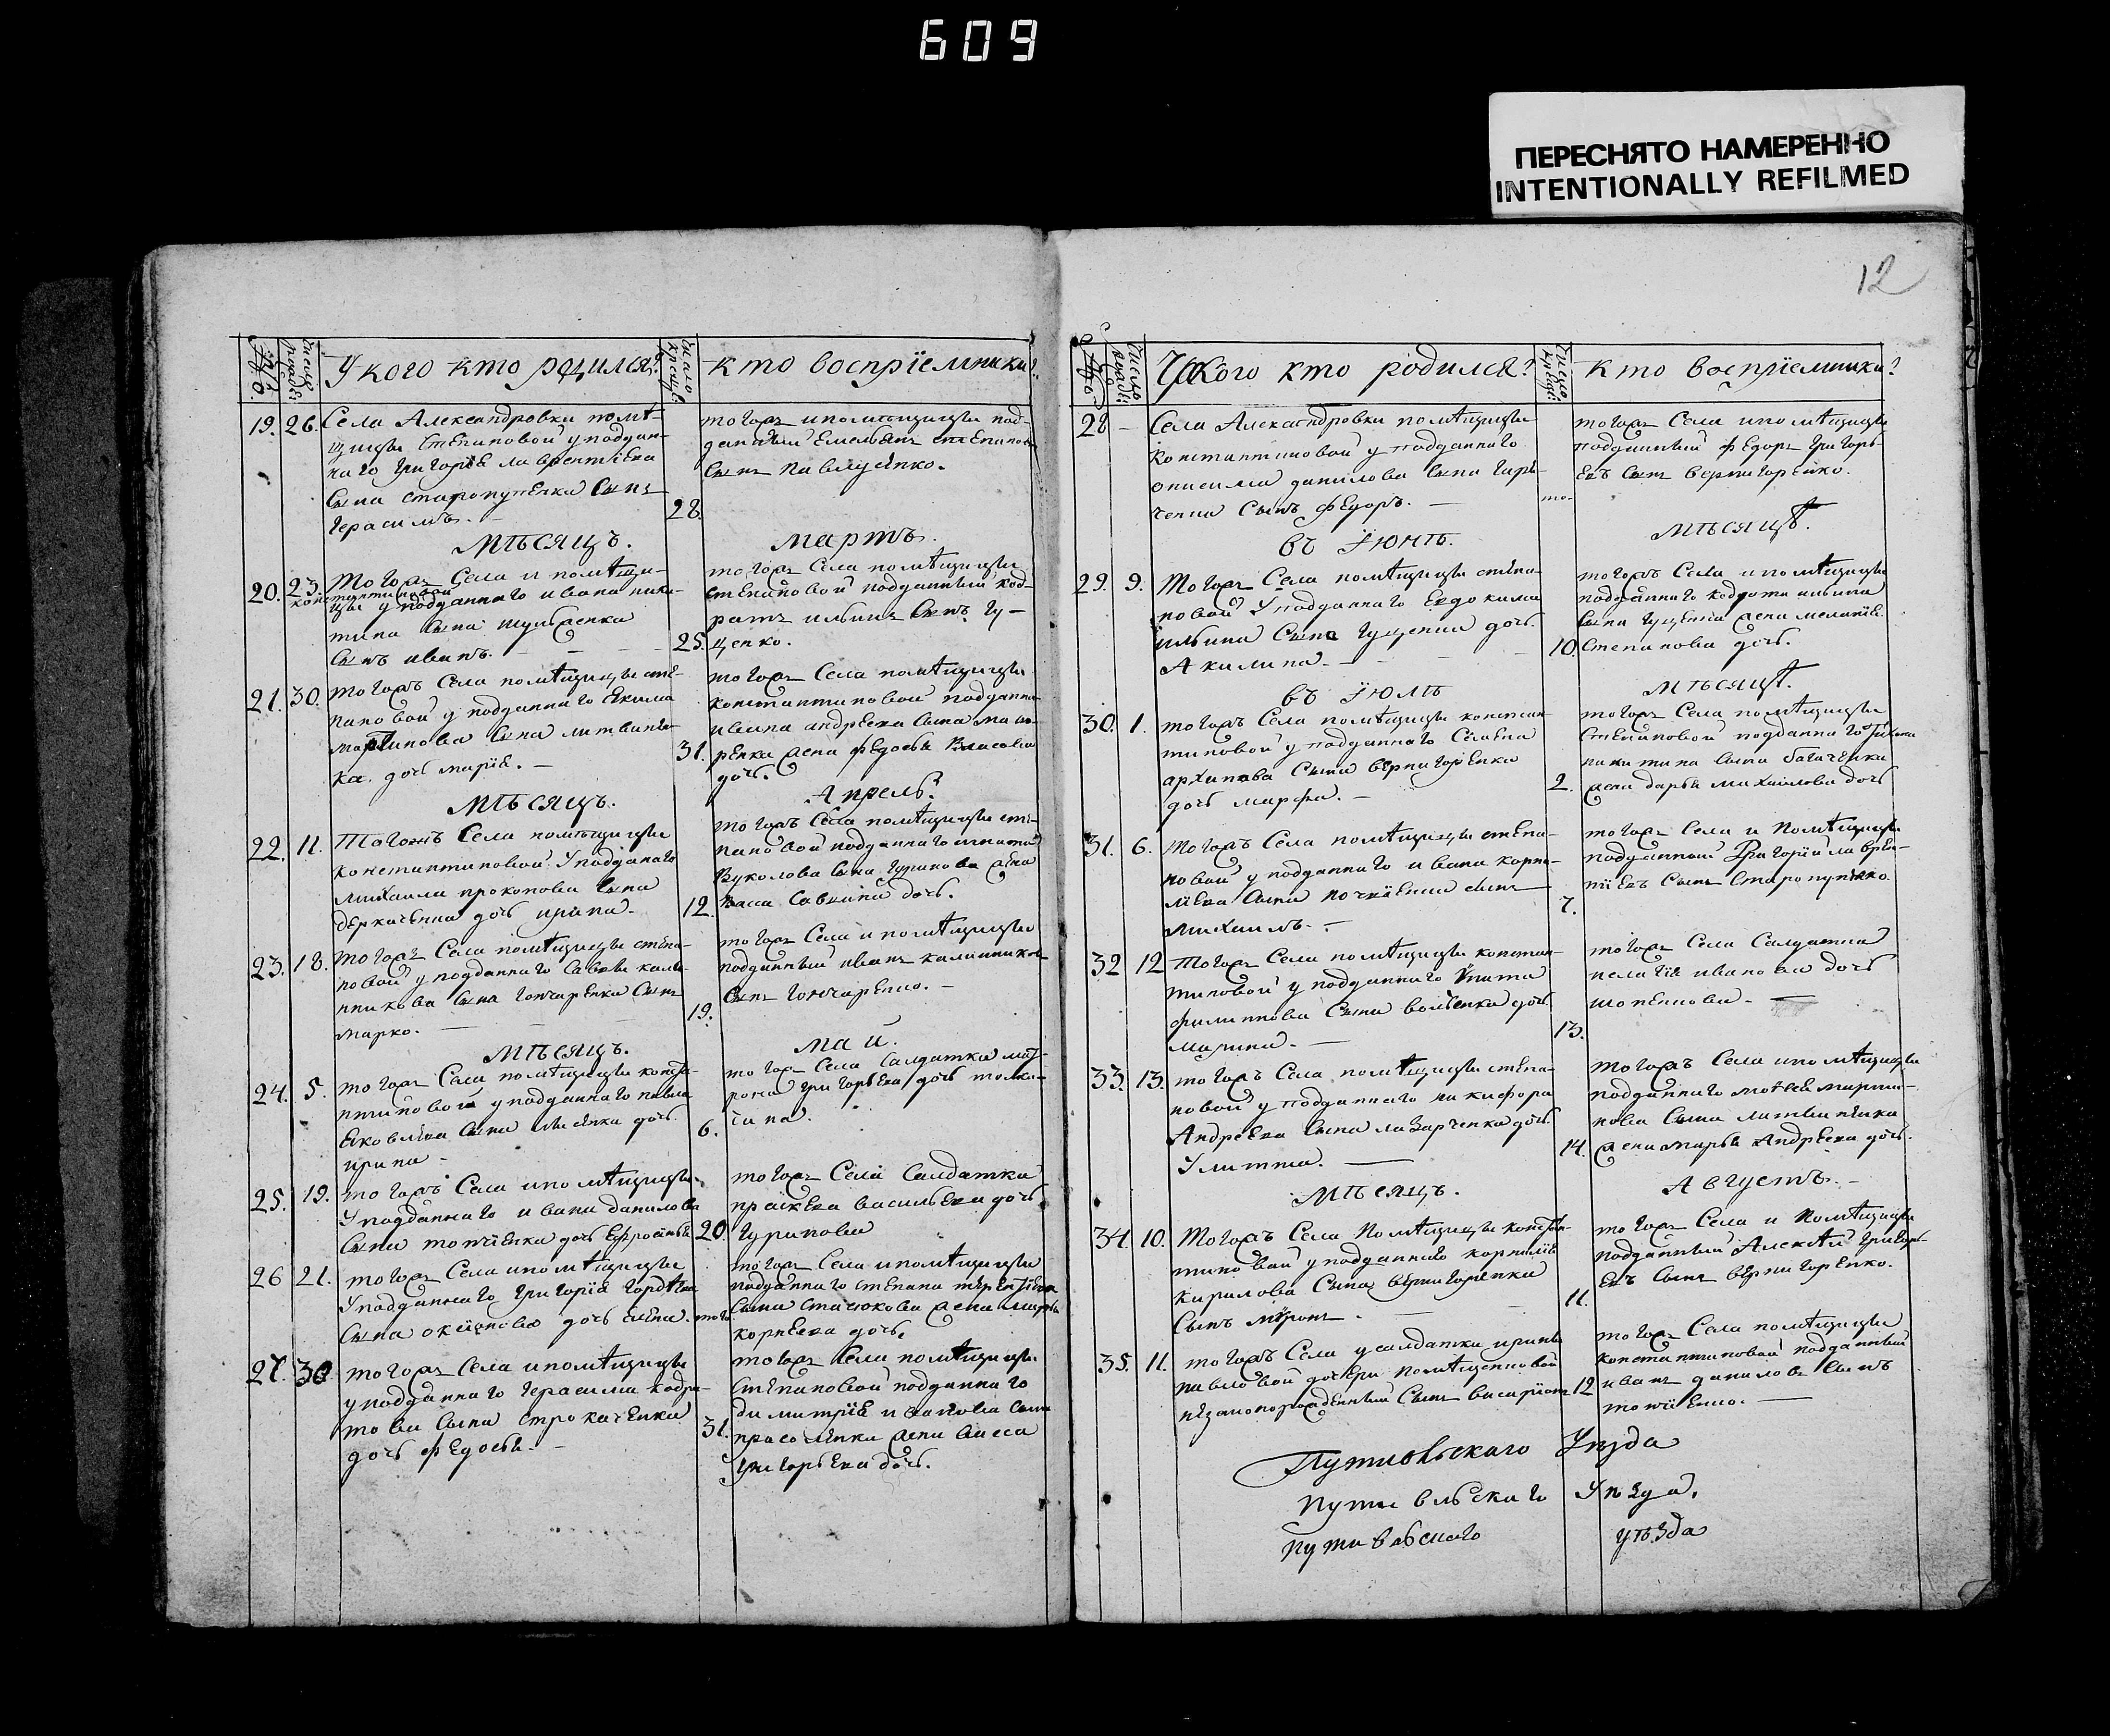 609
ПЕРЕСНЯТО НАМЕРЕННО
INTENTIONALLY REFILMED
12
У кого кто родился?
кто воспрїемники?
19. 26. Села Александровки помѣ-
щицы Степановой у поддан-
наго Григорїя лаврентїева
Сына старопутенка Сынъ
Герасимъ. -
28.
тогожъ и помѣщицы под-
данный Емельянъ степановъ
Сынъ Павлусенко.
мѣсяцъ.
мартъ.
20. 23. Тогожъ Села и помѣщи-
константиновой
цы у подданнаго ивана ники-
тина Сына
Сынъ иванъ.
25.
тогожъ Села помѣщицы
степановой подданный код-
ратъ ильинъ Сынъ гу-
ценко.
21. 30. тогожъ Села помѣщицы сте-
пановой у подданнаго Екима
мартинова Сына литвинен-
ка дочь марїя. -
31.
тогожъ Села помѣщицы
константиновой подданна
ивана андреева Сына
жена федосья Власова
дочь.
мѣсяцъ.
Апрель.
22. 11. Тогожъ Села помѣщицы
константиновой У подданаго
михаила прокопова Сына
деркаченка дочь ирина.
12.
тогожъ Села помѣщицы сте-
пановой подданнаго игната
Вуколова Сына Гуринова жена
Васса Савина дочь.
23. 18. тогожъ Села помѣщицы степа-
новой у подданнаго Савы кали-
никова Сына гончаренка Сынъ
марко.
19.
тогожъ Села и помѣщицы
подданный иванъ калиниковъ
Сынъ гончаренко. -
мѣсяцъ.
май.
24. 5. тогожъ Села помѣщицы конста-
нтиновой у подданнаго павла
Яковлева Сына дочь
ирина -
6.
тогожъ Села Салдатка мат-
рона григорьева дочь
25. 19. тогожъ Села и помѣщицы
У подданнаго ивана данилова
Сына дочь Ефросинья
20.
тогожъ Села Салдатка
праскева васильева дочь
гуринова
26 21. тогожъ Села и помѣщицы
У подданнаго григорїя гордѣева
Сына дочь елена.
тогожъ Села и помѣщицы
подданнаго степана терентїева
Сына стасюкова жена марья
корнеева дочь.
27. 30 тогожъ Села и помѣщицы
у подданнаго герасима кодра-
това Сына строкаченка
дочь федосья. -
31.
тогожъ Села помѣщицы
степановой подданнаго
димитрїя иванова Сына
жена васса
григорьева дочь.
У кого кто родился?
кто воспрїемники?
28 - Села Александровки помѣщицы
константиновой у подданнаго
онисима данилова Сына гарь-
Сынъ федоръ. -
то-
тогожъ Села и помѣщицы
подданный федоръ григорь-
евъ Сынъ вернигоренко.
въ їюнѣ.
мѣсяцѣ.
29. 9. Тогожъ Села помѣщицы степа-
новой У подданнаго Евдокима
ильина Сына гуценка дочь
Акилина.
10.
тогожъ Села и помѣщицы
подданнаго кодрата ильина
Сына гуценка жена меланїя
степанова дочь.
въ їюлѣ
мѣсяцѣ.
30. 1. тогожъ Села помѣщицы констан-
тиновой у подданнаго Семена
архипова Сына вернигоренка
дочь марфа. -
2.
тогожъ Села помѣщицы
Степановой подданнаго Тихона
никитина Сына багаченка
жена дарья михаилова дочь
31. 6. тогожъ Села помѣщицы степа-
новой у подданнаго ивана корни-
лїева Сына Сынъ
михаилъ. -
7.
тогожъ Села и Помѣщицы
подданный Григорїй лаврен-
тїевъ Сынъ Старопутенко.
32 12 Тогожъ Села помѣщицы констан-
тиновой у подданнаго игната
филиппова Сына дочь
марина. -
13.
тогожъ Села Салдатка
пелагїя иванова дочь
33. 13. тогожъ Села помѣщицы степа-
новой у подданнаго никифора
Андреева Сына лазарченка дочь
Улитта.
14.
тогожъ Села и помѣщицы
подданнаго мойсея марти-
нова Сына литвиненка
жена марья Андреева дочь.
мѣсяцъ.
Августъ.
34. 10. Тогожъ Села Помѣщицы констан-
тиновой у подданнаго корнилїя
кирилова Сына вернигоренка
Сынъ миронъ.
11.
тогожъ Села и Помѣщицы
подданный Алексѣй григорь-
евъ Сынъ вернигоренко.
35. 11. тогожъ Села у салдатки ирины
павловой дочери
незаконорожденный Сынъ висарїонъ
12
тогожъ Села помѣщицы
константиновой подданный
иванъ даниловъ Сынъ
Путивльскаго Уезда
Путивльскаго Уѣзда.
Путивльскаго уѣзда